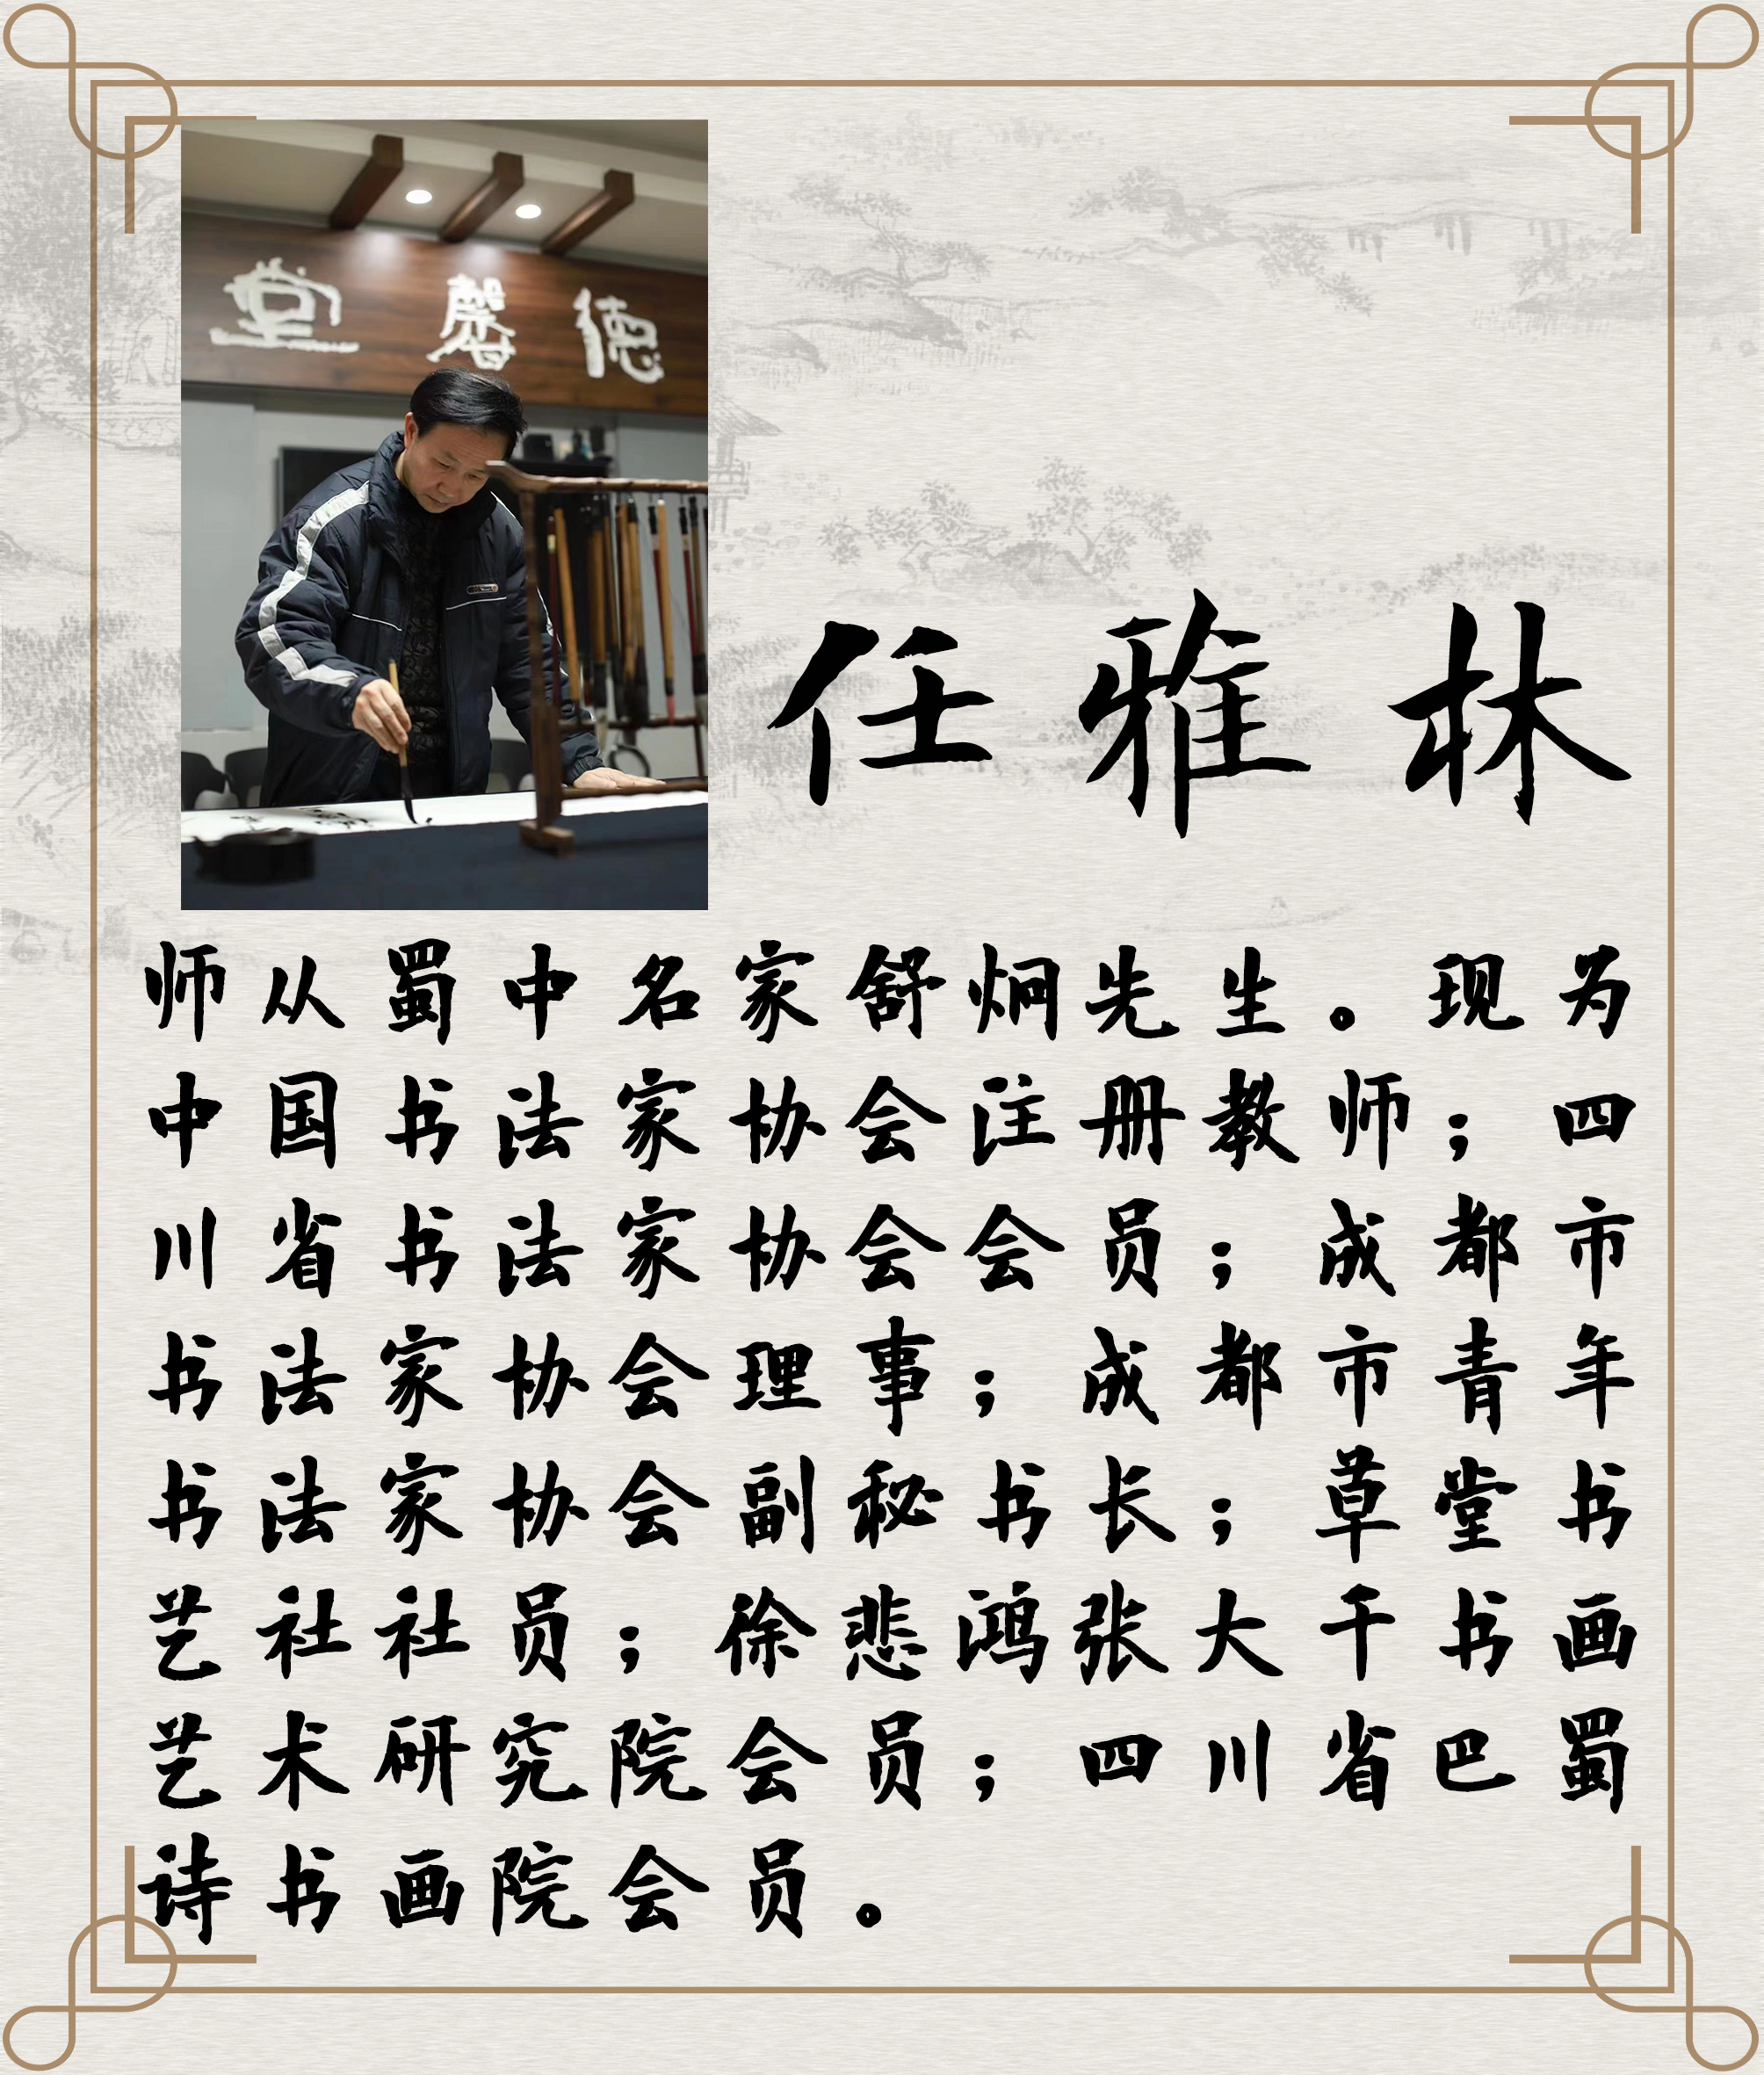 德馨堂
任雅林
师从蜀中名家舒炯先生。现为
中国书法家协会注册教师；四
川省书法家协会会员；成都市
书法家协会理事；成都市青年
书法家协会副秘书长；草堂书
艺社社员；徐悲鸿张大千书画
艺术研究院会员；四川省巴蜀
诗书画院会员。